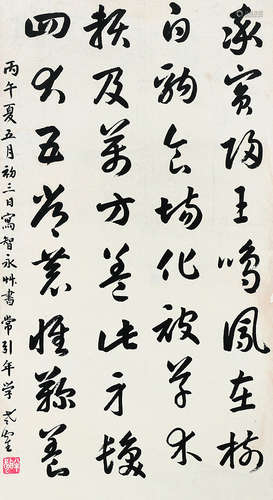 率賓歸王鳴鳳在樹
白駒食場化被草木
賴及萬方蓋此身髮
四大五常恭惟鞠養
丙午夏五月初三日寫智永艸書常引年学